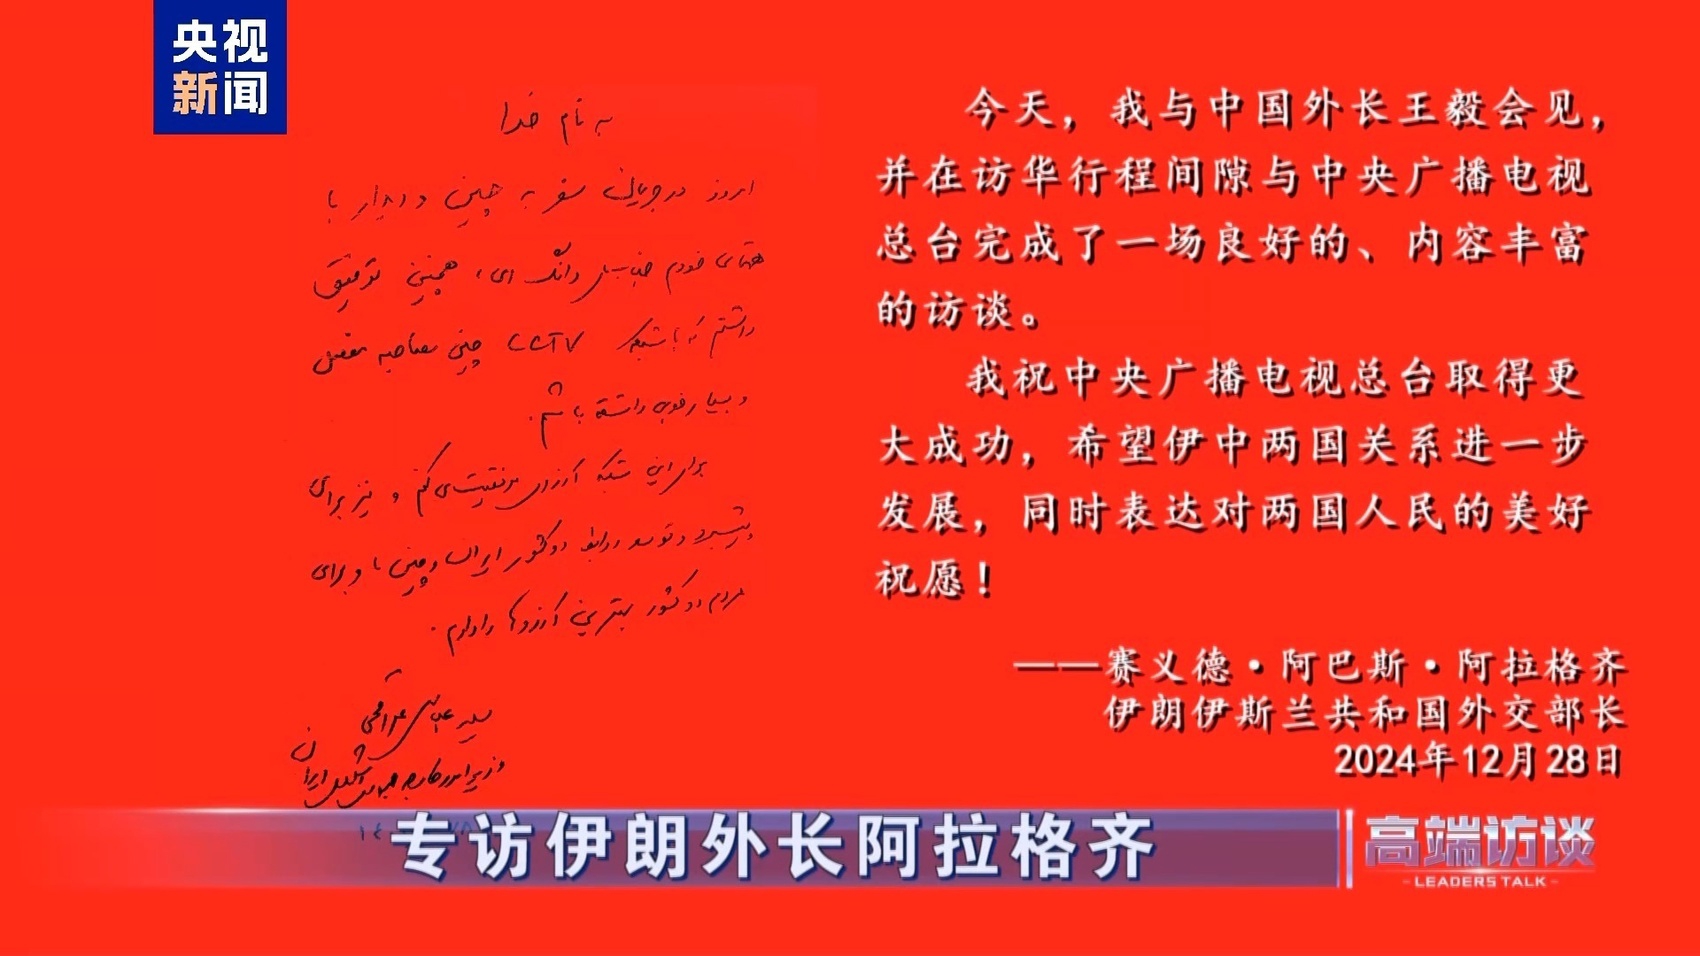 央视
新闻
به نام خدا
امروز در جریان سفر به چین و دیدار با
همتای خودم جناب وانگ ای، همچنین توفیق
داشتم که با شبکه CCTV چین مصاحبه مفصل
و بسیار خوبی داشته باشم.
برای این شبکه آرزوی موفقیت می کنم و نیز برای
پیشبرد و توسعه روابط دو کشور ایران و چین و برای
مردم دو کشور بهترین آرزوها را دارم.
سید عباس عراقچی
وزیر امور خارجه جمهوری اسلامی ایران
今天，我与中国外长王毅会见，
并在访华行程间隙与中央广播电视
总台完成了一场良好的、内容丰富
的访谈。
我祝中央广播电视总台取得更
大成功，希望伊中两国关系进一步
发展，同时表达对两国人民的美好
祝愿！
——赛义德·阿巴斯·阿拉格齐
伊朗伊斯兰共和国外交部长
2024年12月28日
专访伊朗外长阿拉格齐
高端访谈
-LEADERS TALK-